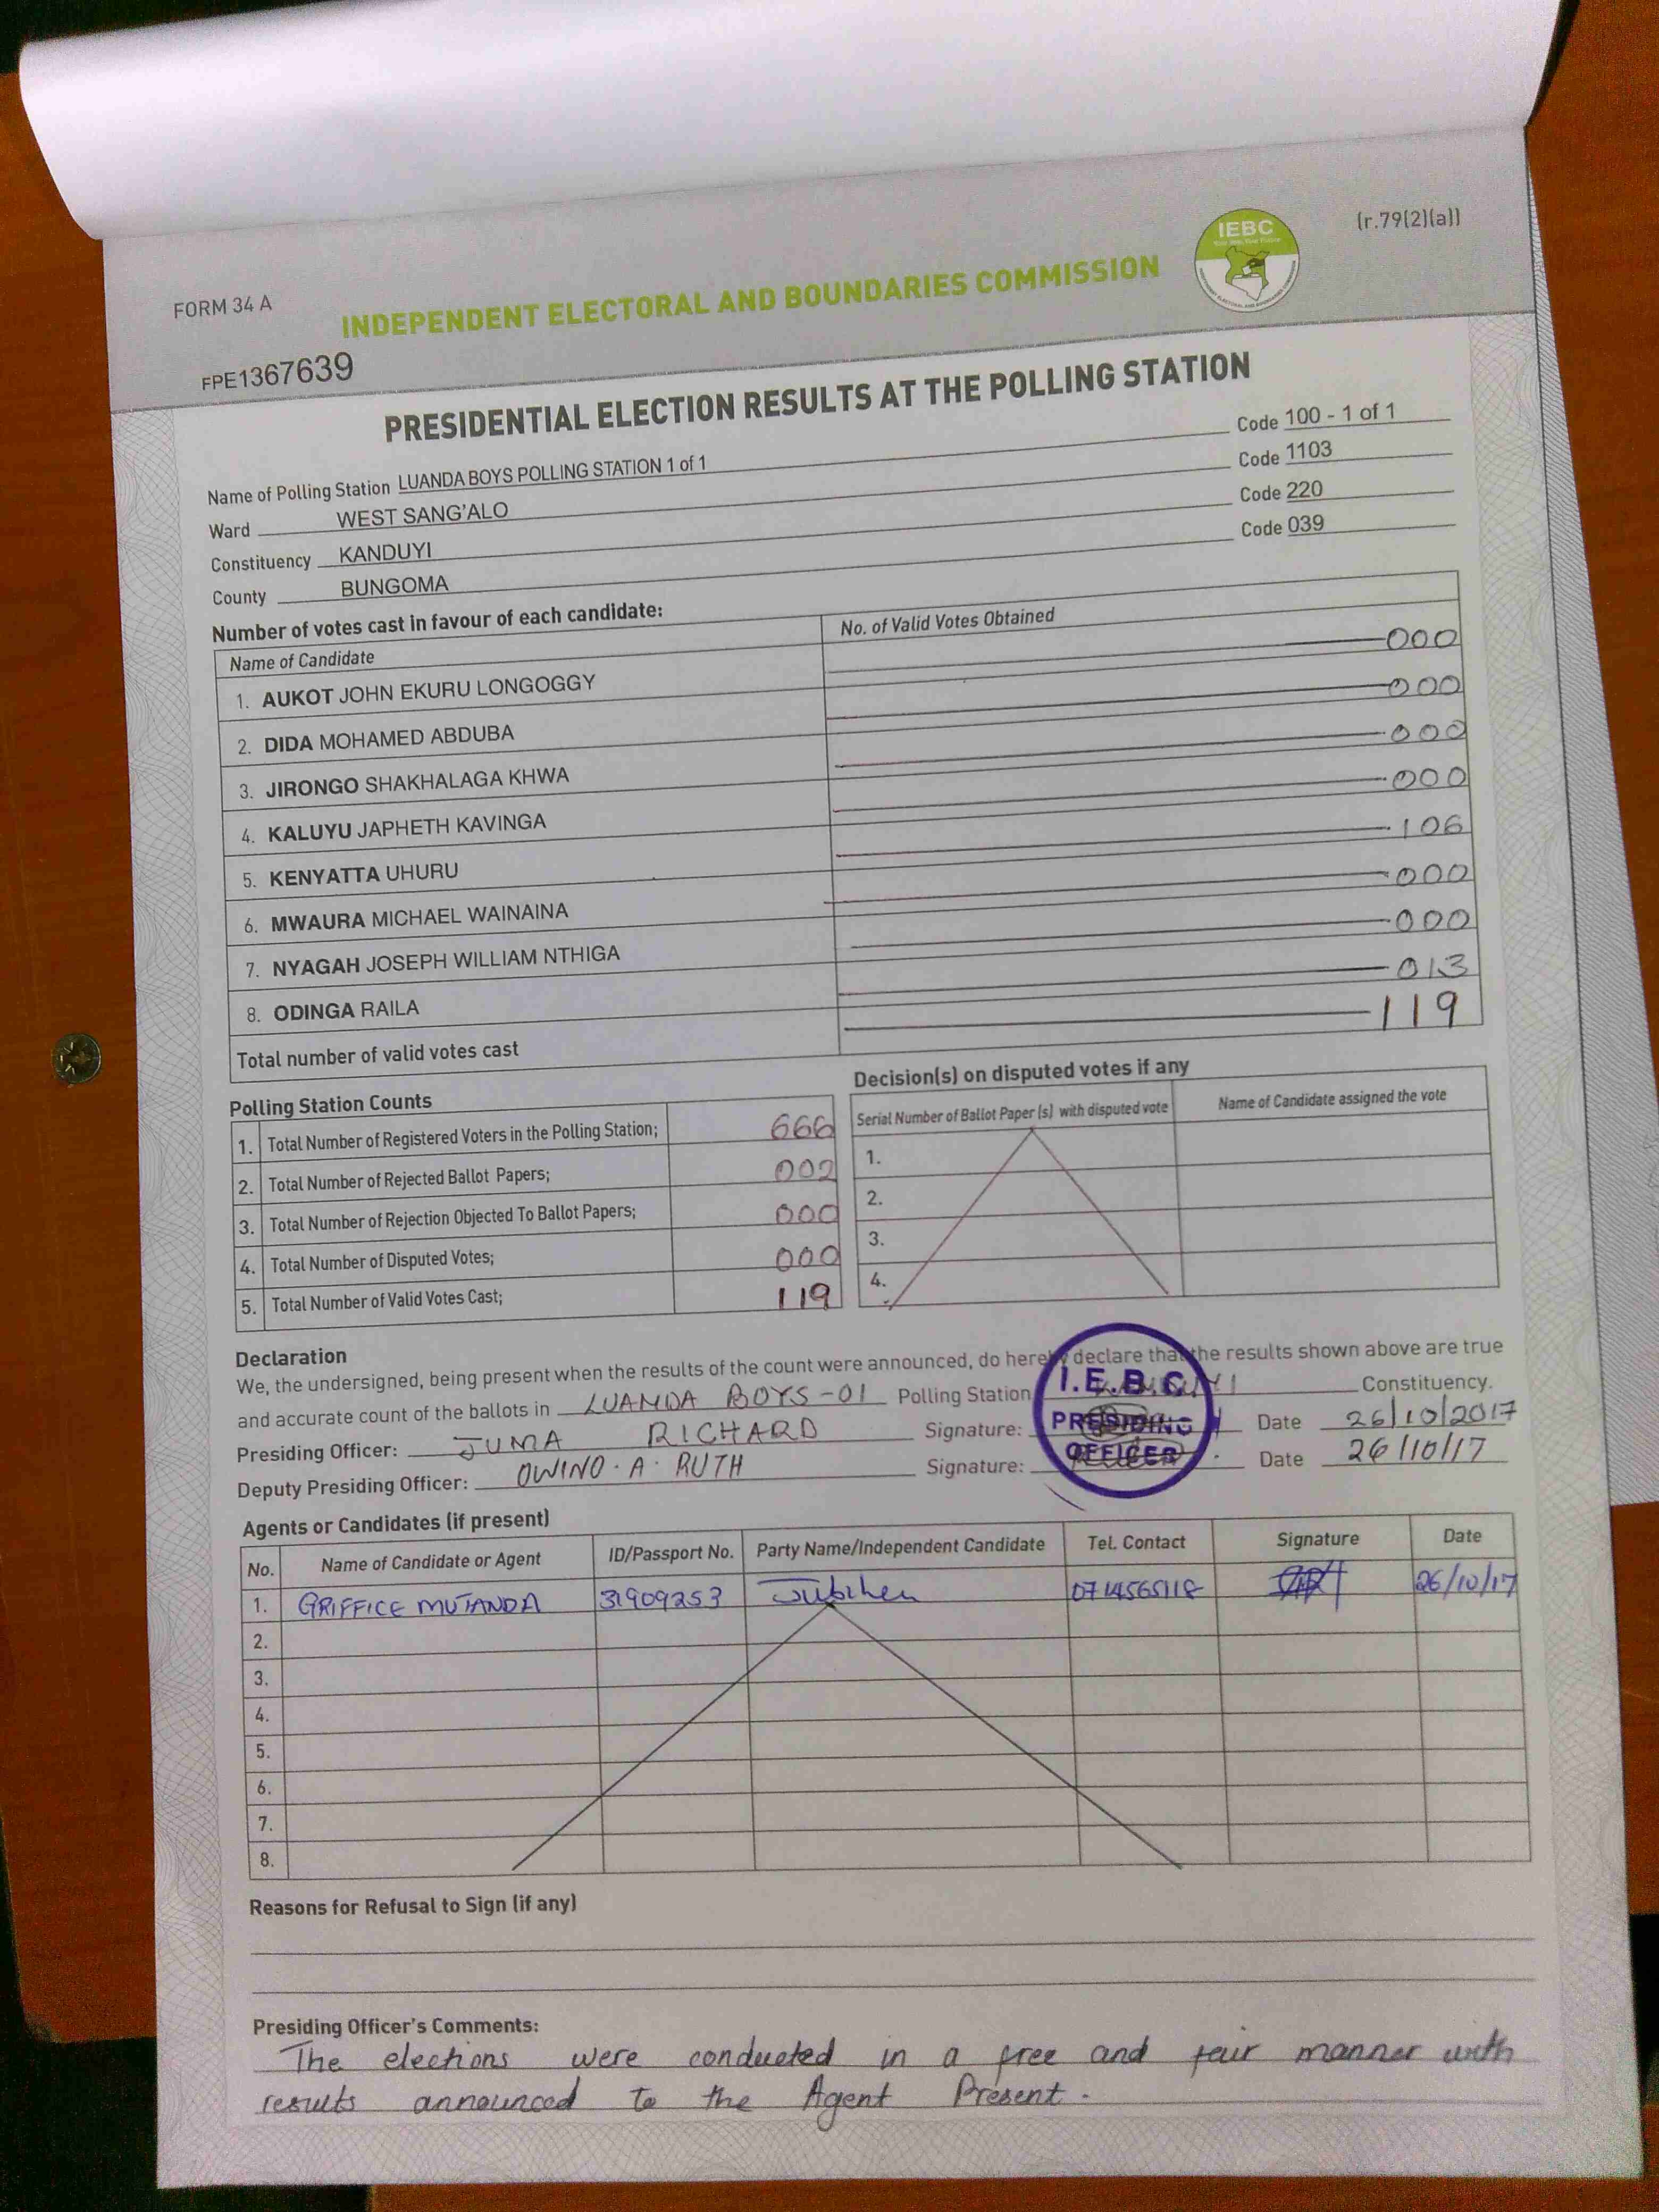 (r.79(2)(a))
IEBC
FORM 34 A
INDEPENDENT ELECTORAL AND BOUNDARIES COMMISSION
FPE1367639
PRESIDENTIAL ELECTION RESULTS AT THE POLLING STATION
Name of Polling Station LUANDA BOYS POLLING STATION 1 of 1 Code 100 - 1 of 1
Ward WEST SANG'ALO Code 1103
Constituency KANDUYI Code 220
County BUNGOMA Code 039
Number of votes cast in favour of each candidate:
Name of Candidate No. of Valid Votes Obtained
1. AUKOT JOHN EKURU LONGOGGY 000
2. DIDA MOHAMED ABDUBA 000
3. JIRONGO SHAKHALAGA KHWA 000
4. KALUYU JAPHETH KAVINGA 000
5. KENYATTA UHURU 106
6. MWAURA MICHAEL WAINAINA 000
7. NYAGAH JOSEPH WILLIAM NTHIGA 000
8. ODINGA RAILA 013
Total number of valid votes cast 119
Polling Station Counts
1. Total Number of Registered Voters in the Polling Station; 666
2. Total Number of Rejected Ballot Papers; 002
3. Total Number of Rejection Objected To Ballot Papers; 000
4. Total Number of Disputed Votes; 000
5. Total Number of Valid Votes Cast; 119
Decision(s) on disputed votes if any
Serial Number of Ballot Paper (s) with disputed vote Name of Candidate assigned the vote
1.
2.
3.
4.
Declaration
We, the undersigned, being present when the results of the count were announced, do hereby declare that the results shown above are true
and accurate count of the ballots in LUANDA BOYS -01 Polling Station KANDUYI Constituency.
Presiding Officer: JUMA RICHARD Signature: Date 26/10/2017
Deputy Presiding Officer: OWINO. A. RUTH Signature: Date 26/10/17
I.E.B.C
PRESIDING
OFFICER
Agents or Candidates (if present)
No. Name of Candidate or Agent ID/Passport No. Party Name/Independent Candidate Tel. Contact Signature Date
1. GRIFFICE MUTANDA 31909253 Jubilee 0714565118 26/10/17
2.
3.
4.
5.
6.
7.
8.
Reasons for Refusal to Sign (if any)
Presiding Officer's Comments:
The elections were conducted in a free and fair manner with
results announced to the Agent Present.